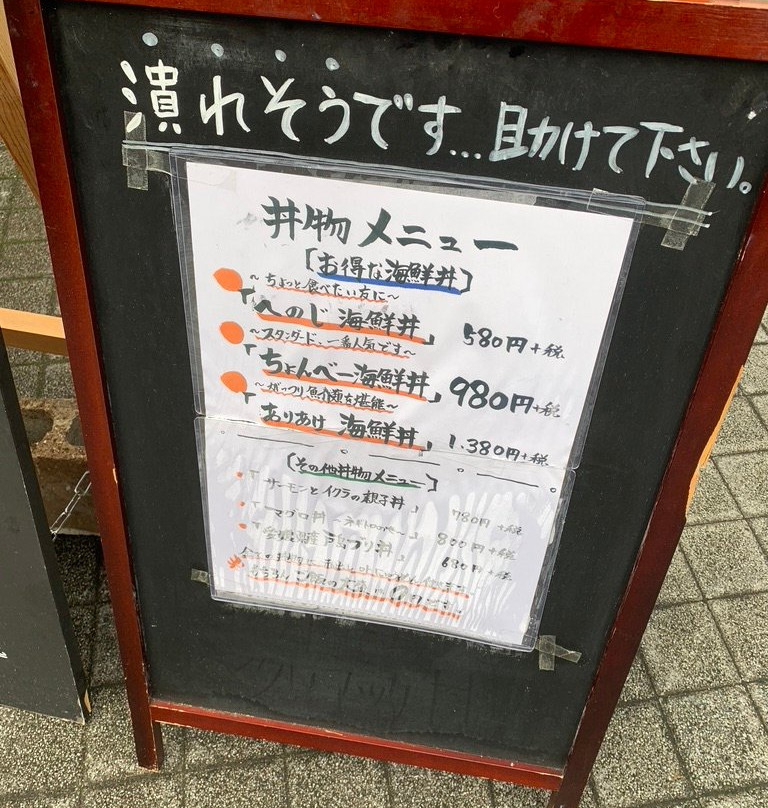 潰れそうです...助けて下さい。
丼物メニュー
[お得な海鮮丼]
〜ちょっと食べたい友に〜
「へのじ 海鮮丼」 580円+税
〜スタンダード、一番人気です〜
「ちょんべー海鮮丼」 980円+税
〜がっつり魚介類を堪能〜
「ありあけ 海鮮丼」 1.380円+税
[その他丼物メニュー]
「サーモンとイクラの親子丼」 780円+税
「マグロ丼 〜ネギトロ 〜」 800円+税
「愛媛県産 戸島ブリ丼」 680円+税
ご飯の大盛り